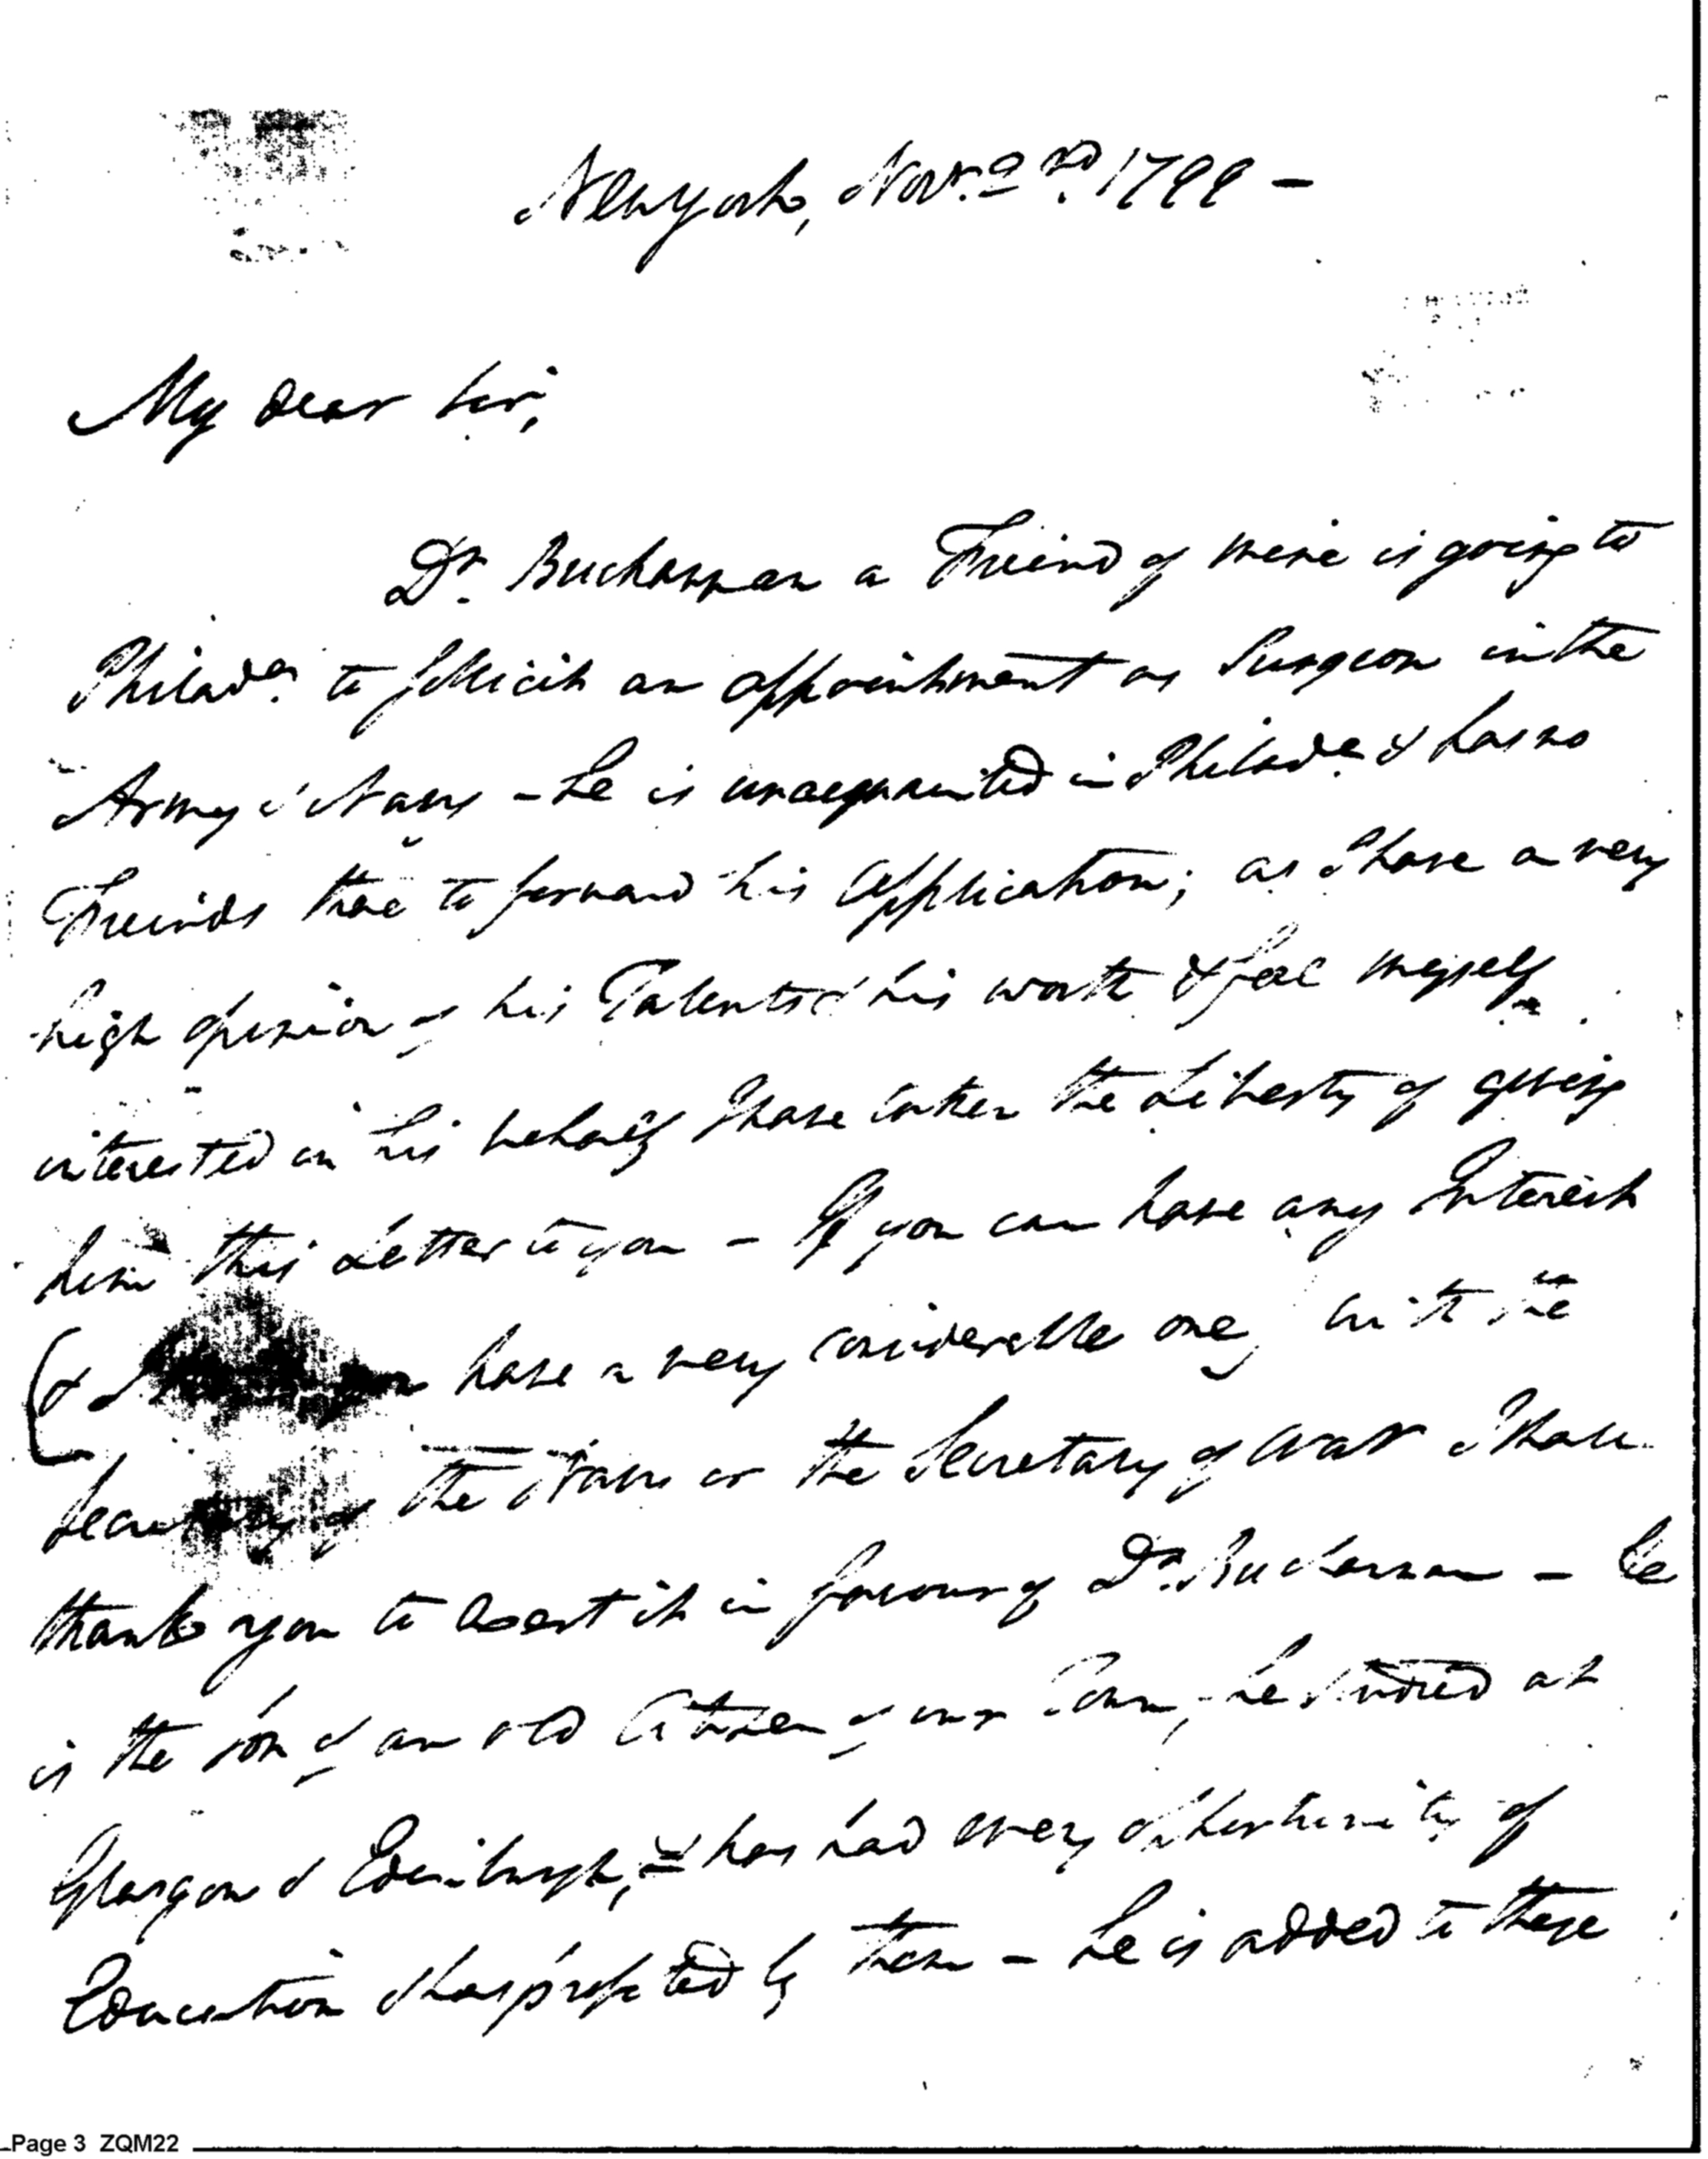 New York, Nov.r 2nd. 1799 -
My dear Sir,
Dr. Buchannan a Freind of mine is going to
Philada. to sollicit an appointment as Surgeon in the
Army or Navy - he is unacquainted in Philada. & has no
Freinds there to forward his Application; as I have a very
high opinion of his Talents & his worth & feel myself
interested in his behalf I have taken the Liberty of giving
him this Letter to you - If you can have any Interest
(& have a very considerable one) with the
Secretary of the Navy or the Secretary of War I shall
thank you to exert it in favour of Dr. Buchannan - he
is the son of an old Citizen of our Town, he studied at
Glasgow & Edinburgh, & has had every opportunity of
Education & has profited by them - he is added to these
Page 3 ZQM22